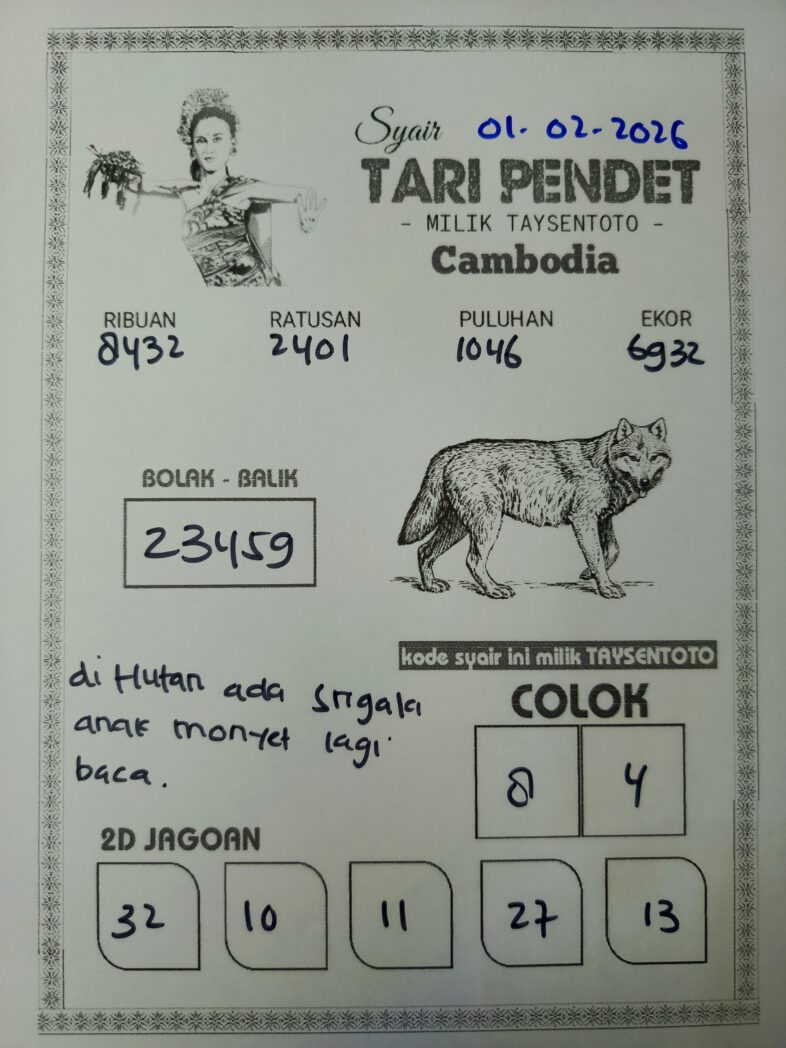 Syair 01-02-2026
TARI PENDET
- MILIK TAYSENTOTO -
Cambodia
RIBUAN RATUSAN PULUHAN EKOR
8432 2401 1046 6932
BOLAK - BALIK
23459
kode syair ini milik TAYSENTOTO
di Hutan ada srigala
anak monyet lagi
baca.
COLOK
8 4
2D JAGOAN
32 10 11 27 13